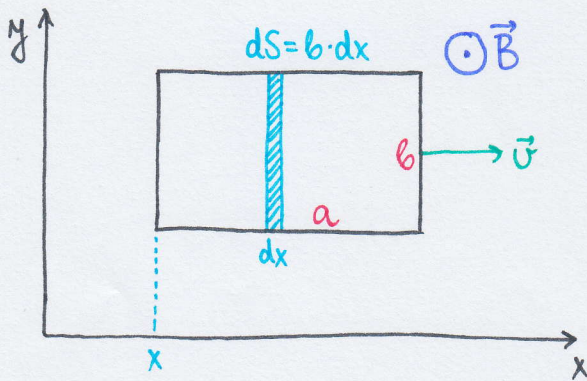 y
dS = b·dx
⊙ B⃗
b
v⃗
a
dx
x
x